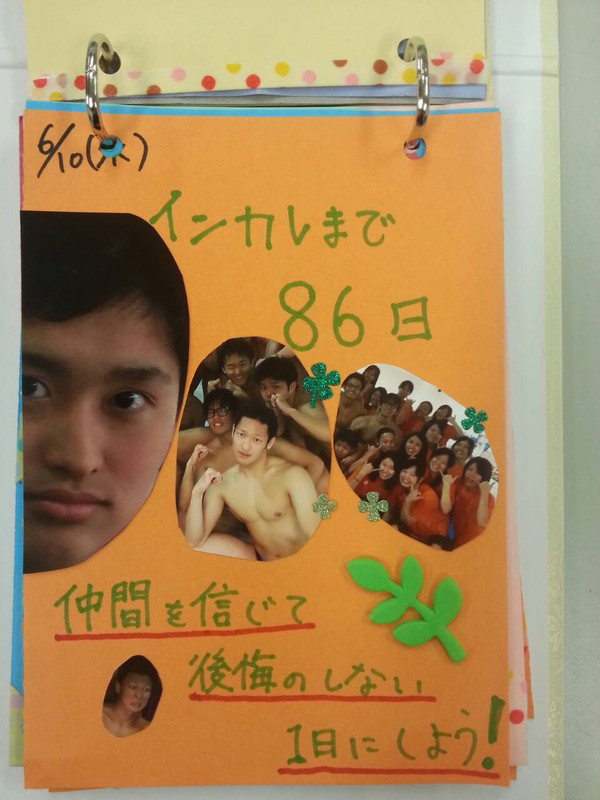 6/10(水)
インカレまで
86日
仲間を信じて
後悔のしない
1日にしよう!